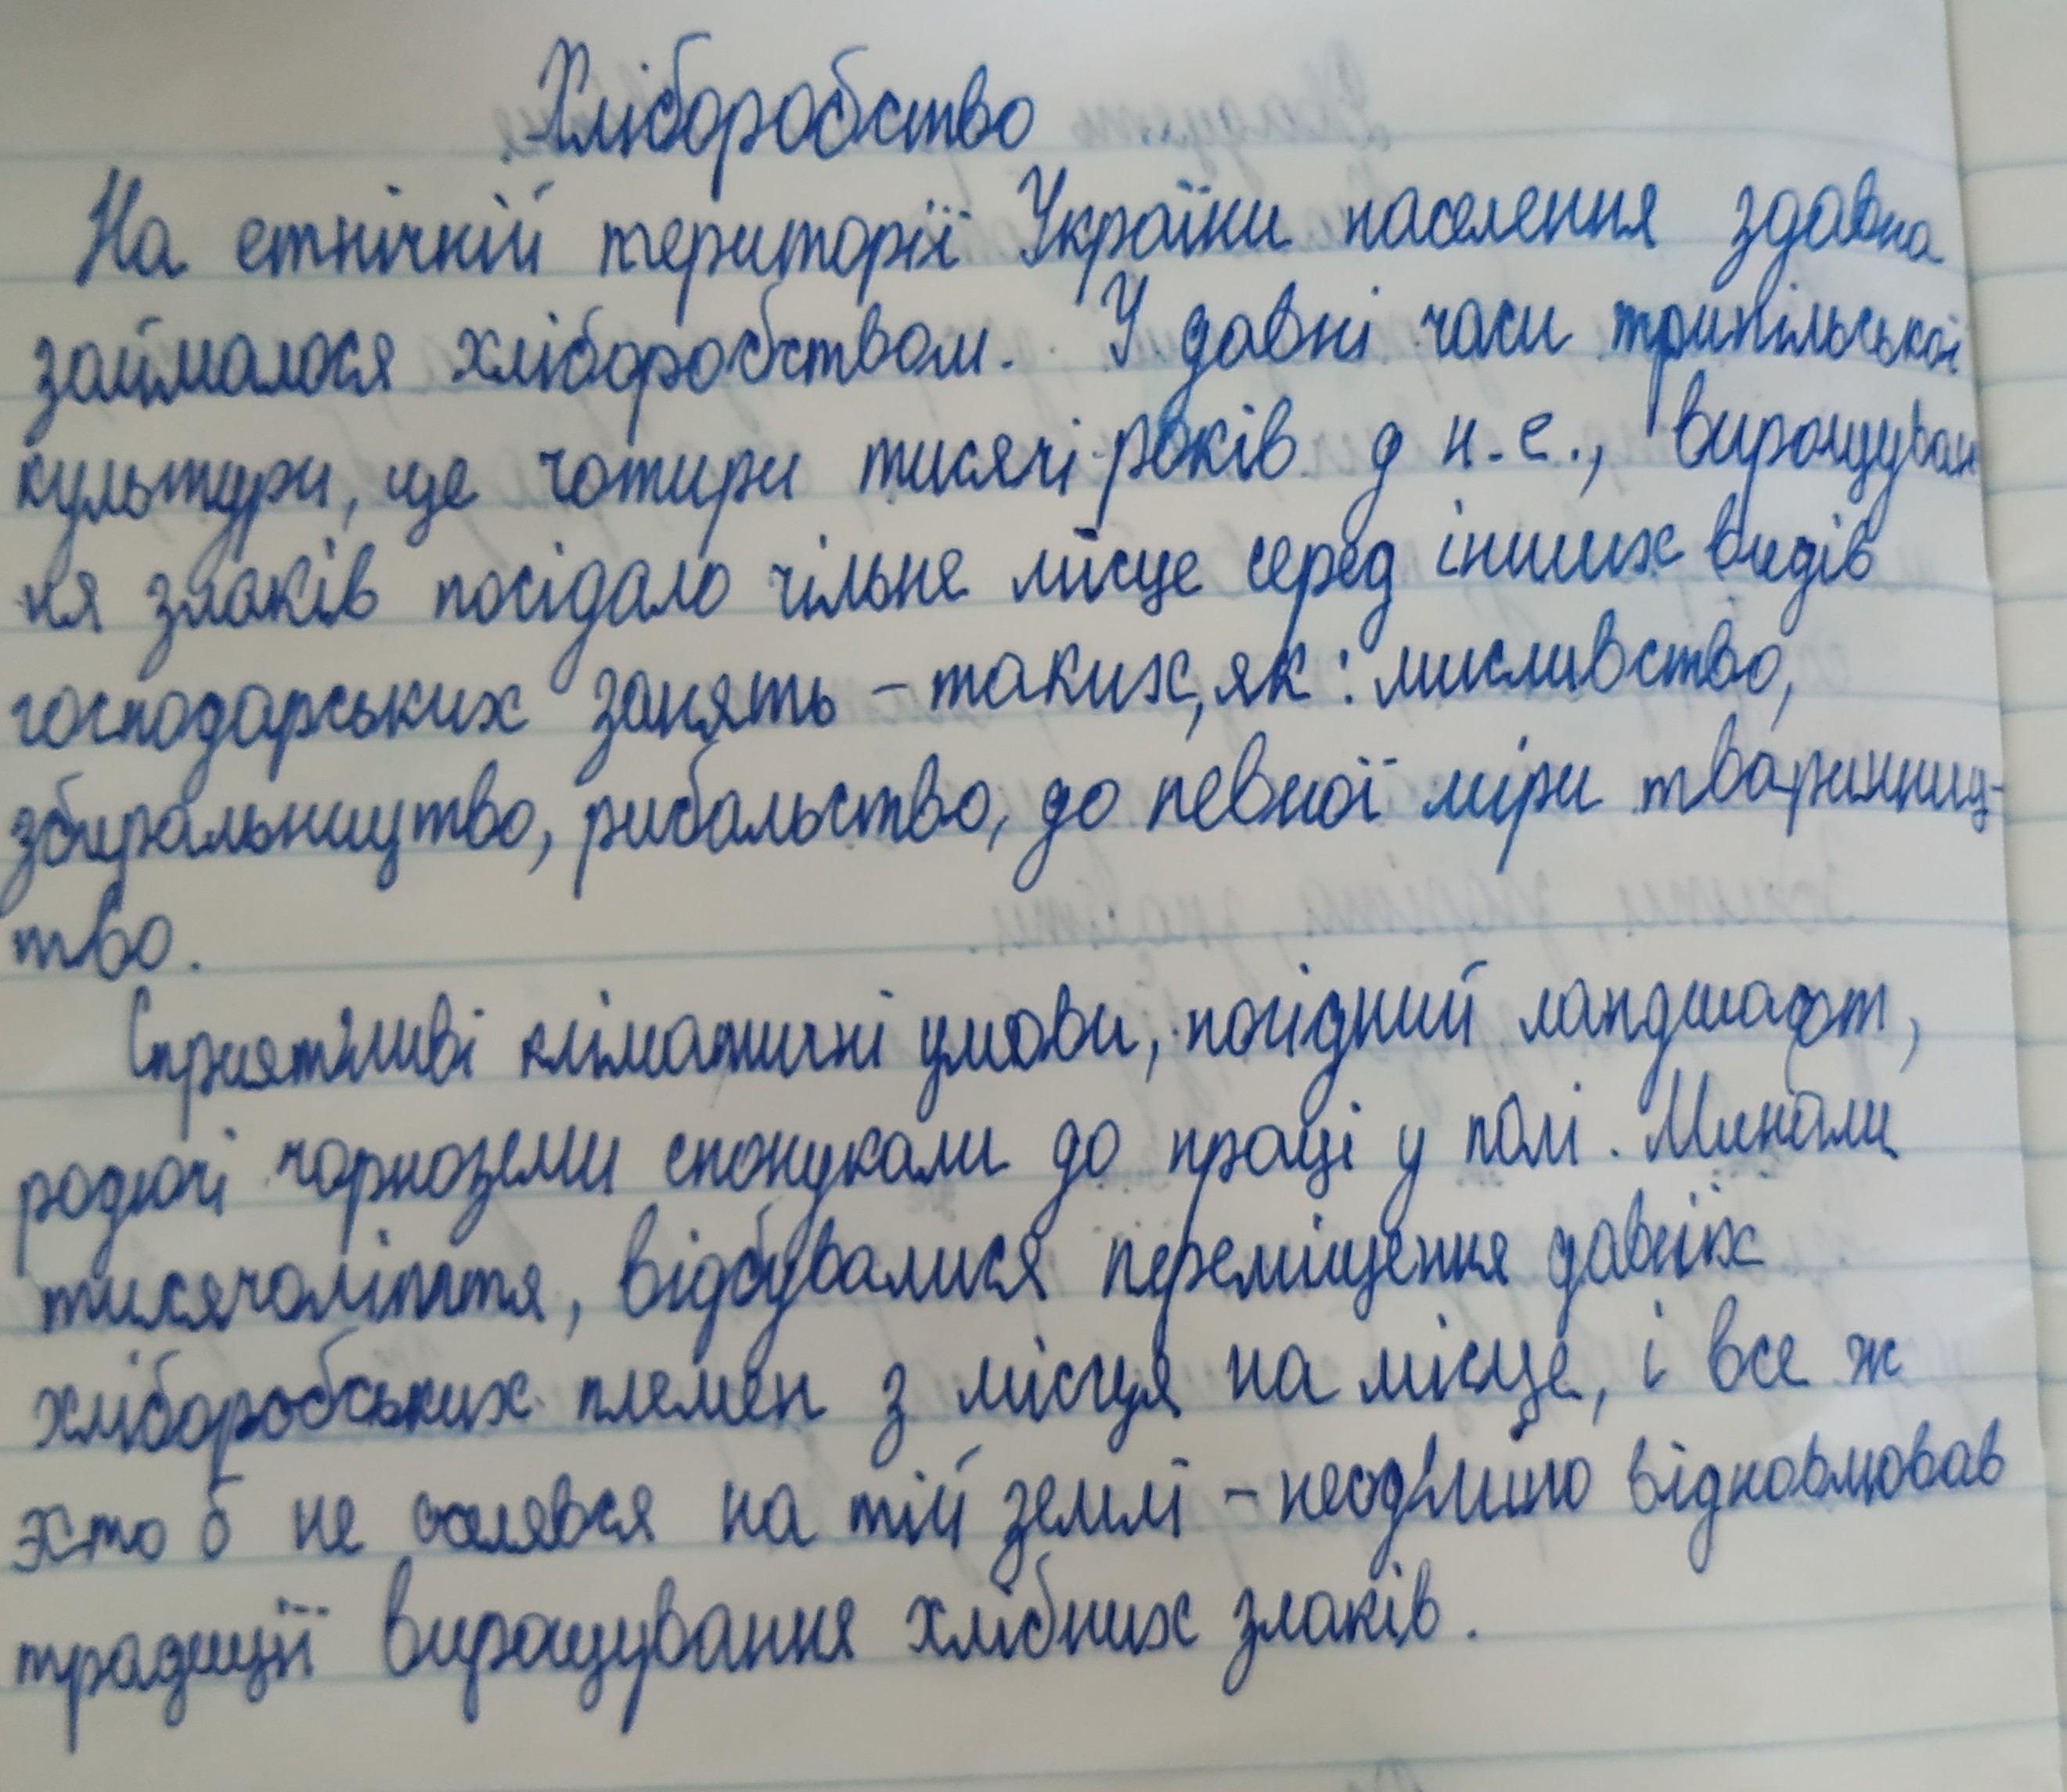 Хліборобство
На етнічній території України населення здавна
займалося хліборобством. У давні часи трипільської
культури, ще чотири тисячі років д н.е., вирощуван
ня злаків посідало чільне місце серед інших видів
господарських занять – таких, як: мисливство,
збиральництво, рибальство, до певної міри тваринниц-
тво.
Сприятливі кліматичні умови, погідний ландшафт,
родючі чорноземи спонукали до праці у полі. Минали
тисячоліття, відбувалися переміщення давніх
хліборобських племен з місця на місце, і все ж
хто б не селявся на тій землі – неодмінно відновлював
традиції вирощування хлібних злаків.